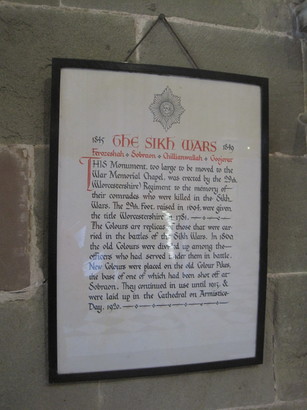 1845 THE SIKH WARS 1849
Ferozeshah • Sobraon • Chillianwallah • Goojerat
THIS Monument, too large to be moved to the
War Memorial Chapel, was erected by the 29th
(Worcestershire) Regiment to the memory of
their comrades who were killed in the Sikh
Wars. The 29th Foot, raised in were given
the title Worcestershire in 1781.
The Colours are replicas of those that were car-
ried in the battles of the Sikh Wars. In 1860
the old Colours were divided up among the
officers who had served under them in battle.
New Colours were placed on the old Colour Pikes,
the base of one of which had been shot off at
Sobraon. They continued in use until 1915, &
were laid up in the Cathedral on Armistice
Day, 1920.